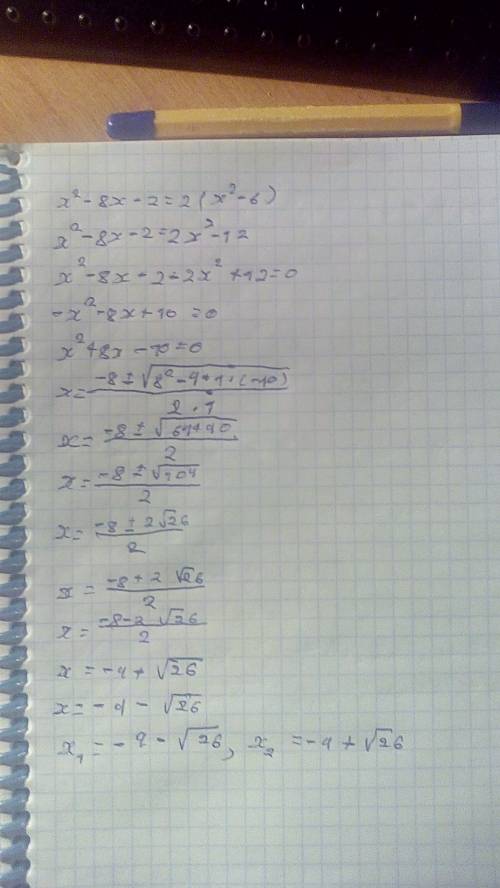 x² - 8x - 2 = 2(x² - 6)
x² - 8x - 2 = 2x² - 12
x² - 8x - 2 - 2x² + 12 = 0
-x² - 8x + 10 = 0
x² + 8x - 10 = 0
x = (-8 ± √(8² - 4 · 1 · (-10))) / (2 · 1)
x = (-8 ± √(64 + 40)) / 2
x = (-8 ± √104) / 2
x = (-8 ± 2√26) / 2
x = (-8 + 2√26) / 2
x = (-8 - 2√26) / 2
x = -4 + √26
x = -4 - √26
x₁ = -4 - √26, x₂ = -4 + √26